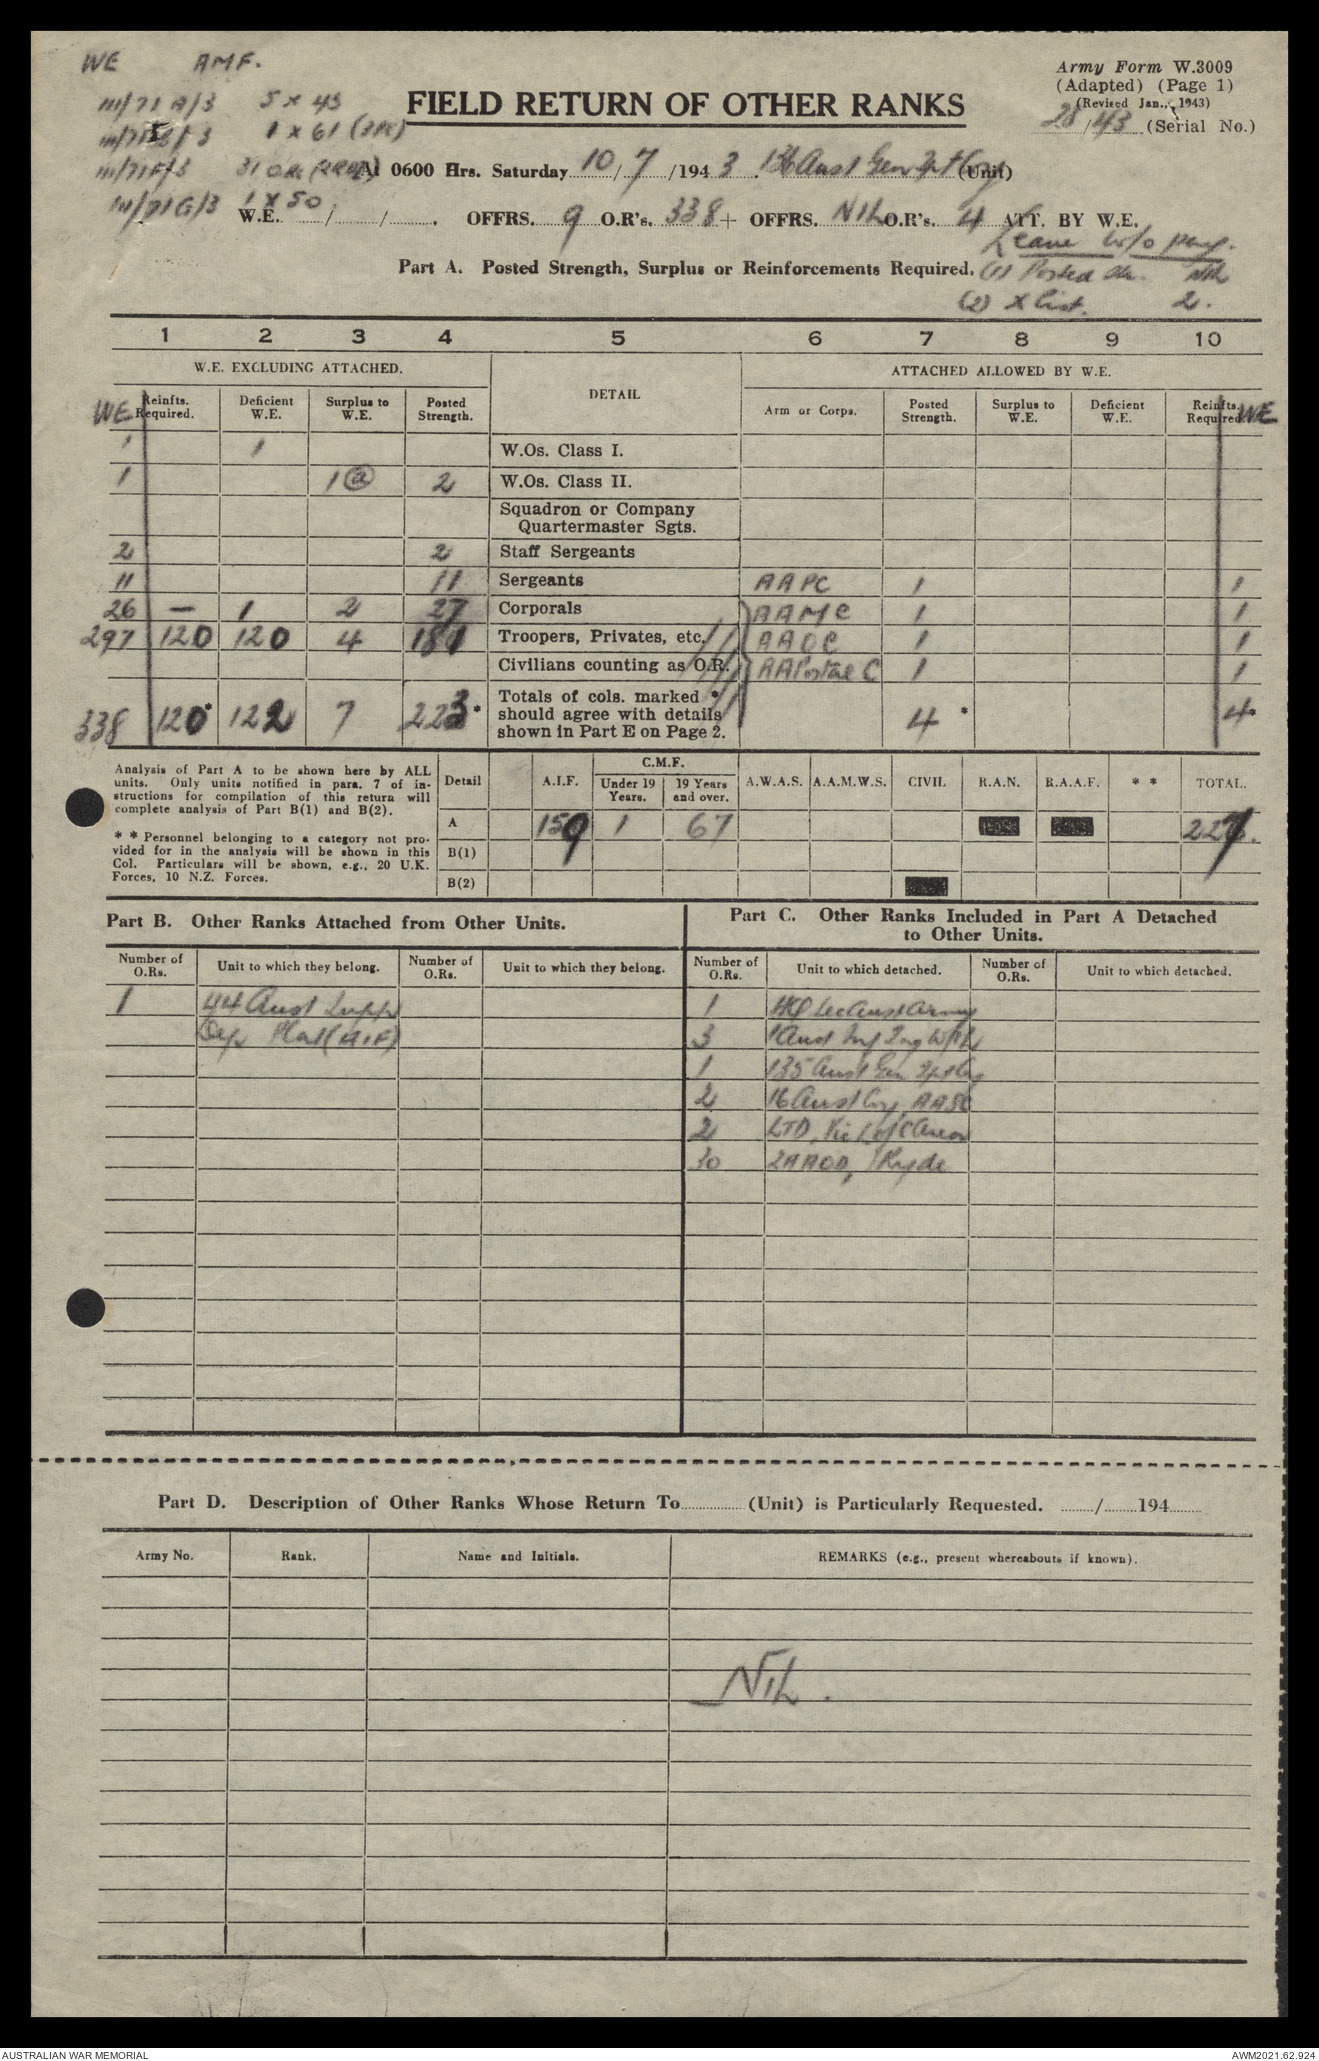 WE AMF.
111/71A/3 5 x 43
1 x 61
111/71F/3 31 ORs
111/71G/3 1 x 50
Army Form W.3009
(Adapted) (Page 1)
(Revised Jan., 1943)
28/43 (Serial No.)
FIELD RETURN OF OTHER RANKS
At 0600 Hrs. Saturday 10/7/1943. 136 Aust Gen Tpt Coy (Unit)
W.E. / / . OFFRS. 9 O.R's. 338 + OFFRS. NIL O.R's. 4 ATT. BY W.E.
Leave w/o pay.
Part A. Posted Strength, Surplus or Reinforcements Required. (1) Posted Str. Nil
(2) X List. 2.
1 2 3 4 5 6 7 8 9 10
W.E. EXCLUDING ATTACHED. DETAIL ATTACHED ALLOWED BY W.E.
WE Reinfts. Required. Deficient W.E. Surplus to W.E. Posted Strength. Arm or Corps. Posted Strength. Surplus to W.E. Deficient W.E. Reinfts. Required. WE
1 1 W.Os. Class I.
1 1@ 2 W.Os. Class II.
Squadron or Company
Quartermaster Sgts.
2 2 Staff Sergeants
11 11 Sergeants AAPC 1 1
26 — 1 2 27 Corporals AAMC 1 1
297 120 120 4 181 Troopers, Privates, etc. AAOC 1 1
Civilians counting as O.R. AAPostal C 1 1
338 120* 122 7 223* Totals of cols. marked *
should agree with details 4* 4*
shown in Part E on Page 2.
Analysis of Part A to be shown here by ALL
units. Only units notified in para. 7 of in-
structions for compilation of this return will
complete analysis of Part B(1) and B(2).
* * Personnel belonging to a category not pro-
vided for in the analysis will be shown in this
Col. Particulars will be shown, e.g., 20 U.K.
Forces, 10 N.Z. Forces.
Detail A.I.F. C.M.F. Under 19 Years. 19 Years and over. A.W.A.S. A.A.M.W.S. CIVIL R.A.N. R.A.A.F. * * TOTAL.
A 159 1 67 227.
B(1)
B(2)
Part B. Other Ranks Attached from Other Units.
Part C. Other Ranks Included in Part A Detached
to Other Units.
Number of O.Rs. Unit to which they belong. Number of O.Rs. Unit to which they belong. Number of O.Rs. Unit to which detached. Number of O.Rs. Unit to which detached.
1 44 Aust Supply 1 HQ Sec Aust Army
Dep Plat (AIF) 3 1 Aust Inf Trg
1 135 Aust Gen Tpt Coy
2 16 Aust Coy, AASC
2 LTD, Vic L of C Area
30 2AAOD, Ryde
Part D. Description of Other Ranks Whose Return To (Unit) is Particularly Requested. / 194
Army No. Rank. Name and Initials. REMARKS (e.g., present whereabouts if known).
NIL.
AUSTRALIAN WAR MEMORIAL AWM2021.62.924